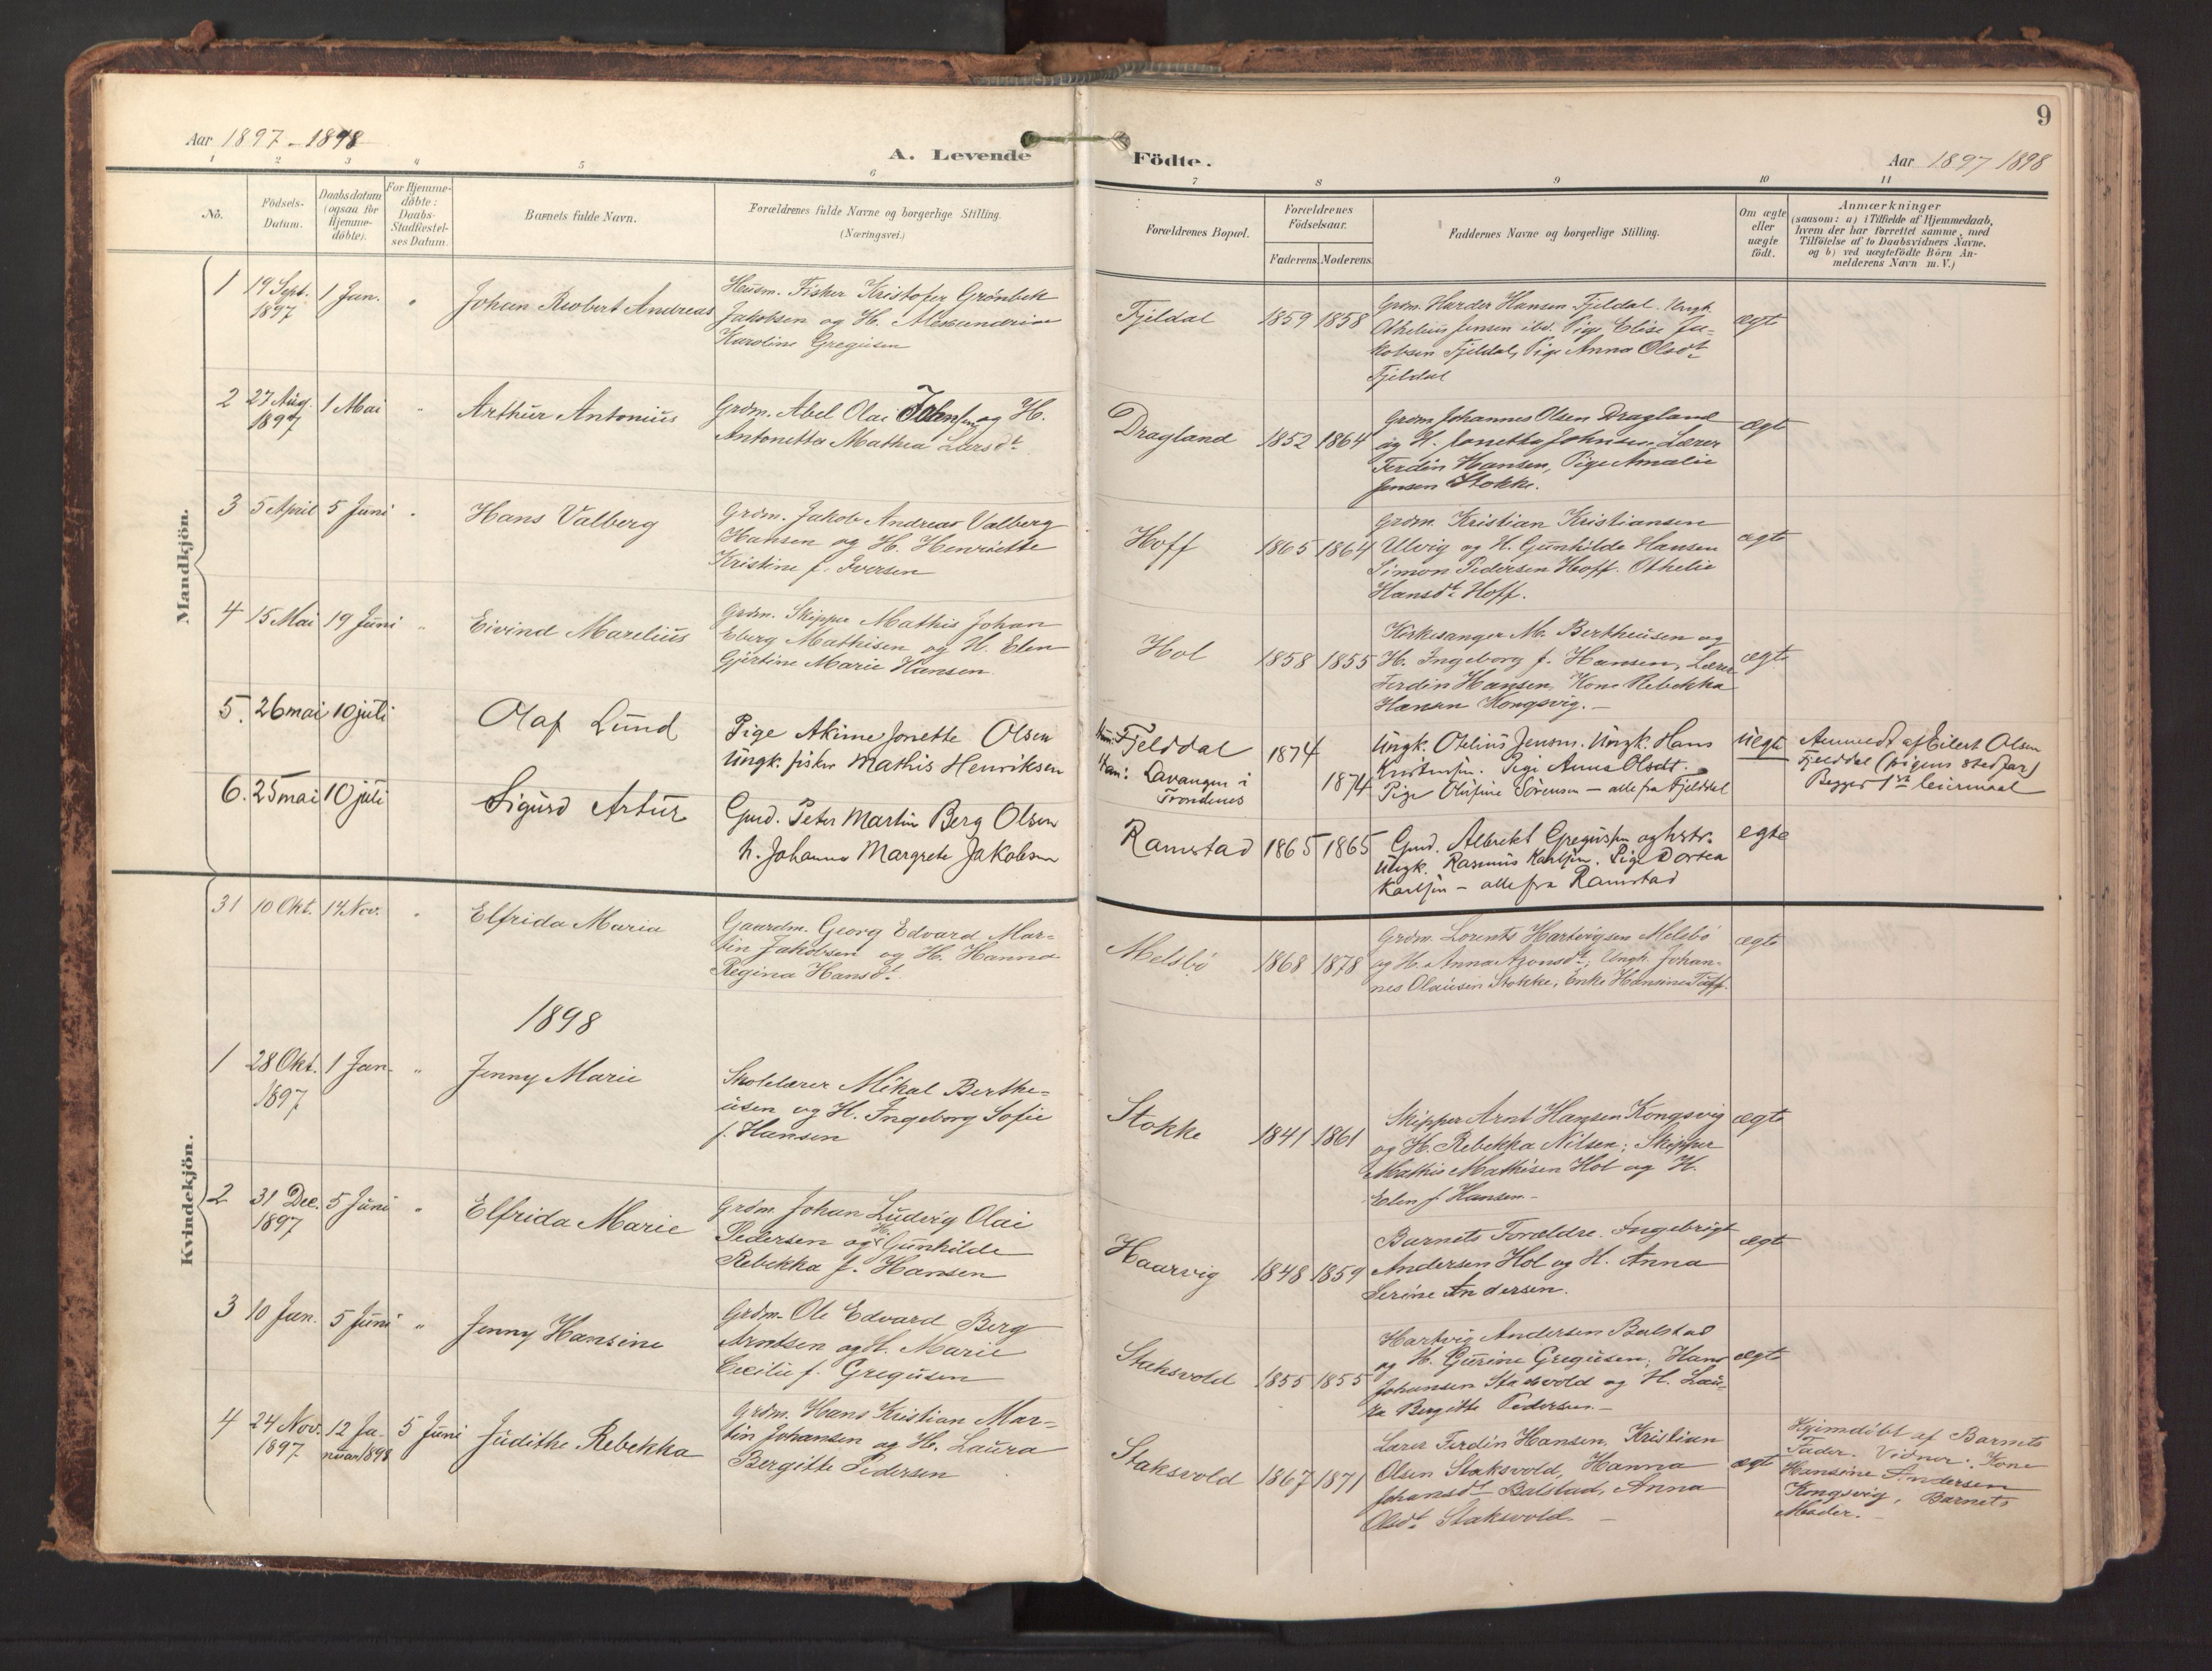 Aar 1897 - 1898
A. Levende
1 2 3 4 5 6
No.
Födsels-
Datum.
Daabsdatum
(ogsaa for
Hjemme-
döbte).
For Hjemme-
döbte:
Daabs-
Stadfæstel-
ses Datum.
Barnets fulde Navn.
Forældrenes fulde Navne og borgerlige Stilling.
(Næringsvei.)
Mandkjön.
1 19 Sept. 1897 1 Jan. " Johan Robert Andreas
Husm. Fisker Kristofer Grönbek
Jakobsen og H. Alexandrine
Karoline Gregusen
2 27 Aug. 1897 1 Mai " Arthur Antonius
Grdm. Abel Olai Johnsen og H.
Antonette Mathea Larsdt
3 5 April 5 Juni " Hans Valberg
Grdm. Jakob Andreas Valberg
Hansen og H. Henriette
Kristine f. Iversen
4 15 Mai 19 Juni " Eivind Marelius
Grdm. Skipper Mathis Johan
Eberg Mathisen og H. Elen
Gjertine Marie Hansen
5. 26 mai 10 juli Olaf Lund
Pige Akime Jonette Olsen
Ungk. fisker Mathis Henriksen
6. 25 mai 10 juli Sigurd Artur
Gmd. Peter Martin Berg Olsen
h. Johanna Margrete Jakobsen
Kvindekjön.
31 10 Okt. 14 Nov. " Elfrida Maria
Gaardm. Georg Edvard Mar-
tin Jakobsen og H. Hanna
Regina Hansdt
1898
1 28 Okt. 1897 1 Jan. " Jenny Marie
Skolelærer Mikal Berthe-
usen og H. Ingeborg Sofie
f. Hansen
2 31 Dec. 1897 5 Juni " Elfrida Marie
Grdm. Johan Ludvig Olai
Pedersen og H. Gunhilde
Rebekka f. Hansen
3 10 Jan. 5 Juni " Jenny Hansine
Grdm. Ole Edvard Berg
Arntsen og H. Marie
Cecilie f. Gregusen
4 24 Nov. 1897 12 Ja-
nuar 1898 5 Juni Judithe Rebekka
Grdm. Hans Kristian Mar-
tin Johansen og H. Laura
Bergitte Pedersen
9
Födte.
Aar 1897 1898
7 8 9 10 11
Forældrenes Bopæl.
Forældrenes
Födselsaar.
Faderens. Moderens.
Faddernes Navne og borgerlige Stilling.
Om ægte
eller
uægte
födt.
Anmærkninger
(saasom: a) i Tilfælde af Hjemmedaab,
hvem der har forrettet samme, med
Tilföielse af to Daabsvidners Navne.
og b) ved uægtefödte Börn An-
melderens Navn m. V.)
Fjeldal 1859 1858
Grdm. Harder Hansen Fjeldal. Ungk.
Othelius Jensen ibd. Pige Elise Ja-
kobsen Fjeldal, Pige Anna Olsdt
Fjeldal
ægte
Dragland 1852 1864
Grdm Johannes Olsen Dragland
og H. Jonetta Johnsen, Lærer
Ferdin Hansen, Pige Amalie
Jensen Stokke.
ægte
Hoff 1865 1864
Grdm. Kristian Kristiansen
Ulvig og H. Gunhilde Hansen
Simon Pedersen Hoff. Othelie
Hansdt Hoff.
ægte
Hol 1858 1855
Kirkesanger M. Bertheusen og
H. Ingeborg f. Hansen, Lærer
Ferdin Hansen, Kone Rebekka
Hansen Kongsvig. -
ægte
Hun: Fjelddal 1874
Han: Lavangen i 1874
Trondenes
Ungk. Otelius Jensen. Ungk. Hans
Kristensen. Pige Anna Olsdt.
Pige Olufine Sörensen - alle fra Fjelddal
uegte
Anmeldt af Eilert Olsen
Fjelddal (pigens stedfar)
Begges 1ste leiermaal
Ramstad 1865 1865
Gmd. Albrekt Gregussen og hstr.
Ungk. Rasmus Karlsen. Pige Dortea
Karlsen - alle fra Ramstad
egte
Melsbö 1868 1878
Grdm. Lorents Hartvigsen Melsbö
og H. Anna Aronsdt; Ungk. Johan-
nes Olausen Stokke, Enke Hansine Taff.
ægte
Stokke 1841 1861
Skipper Arnt Hansen Kongsvig
og H. Rebekka Nilsen; Skipper
Mathis Mathisen Hol og H.
Elen f. Hansen -
ægte
Haarvig 1848 1859
Barnets Forældre. Ingebrigt
Andersen Hol og H. Anna
Serine Andersen.
ægte
Staksvold 1855 1855
Hartvig Andersen Balstad
og H. Gurine Gregusen; Hans
Johansen Staksvold og H. Lau-
ra Bergitte Pedersen. -
ægte
Staksvold 1867 1871
Lærer Ferdin Hansen, Kristian
Olsen Staksvold, Hanna
Johansdt Balstad, Anna
Olsdt Staksvold. -
ægte
Hjemdöbt af Barnets
Fader. Vidner: Kone
Hansine Andersen
Kongsvig, Barnets
Moder. -